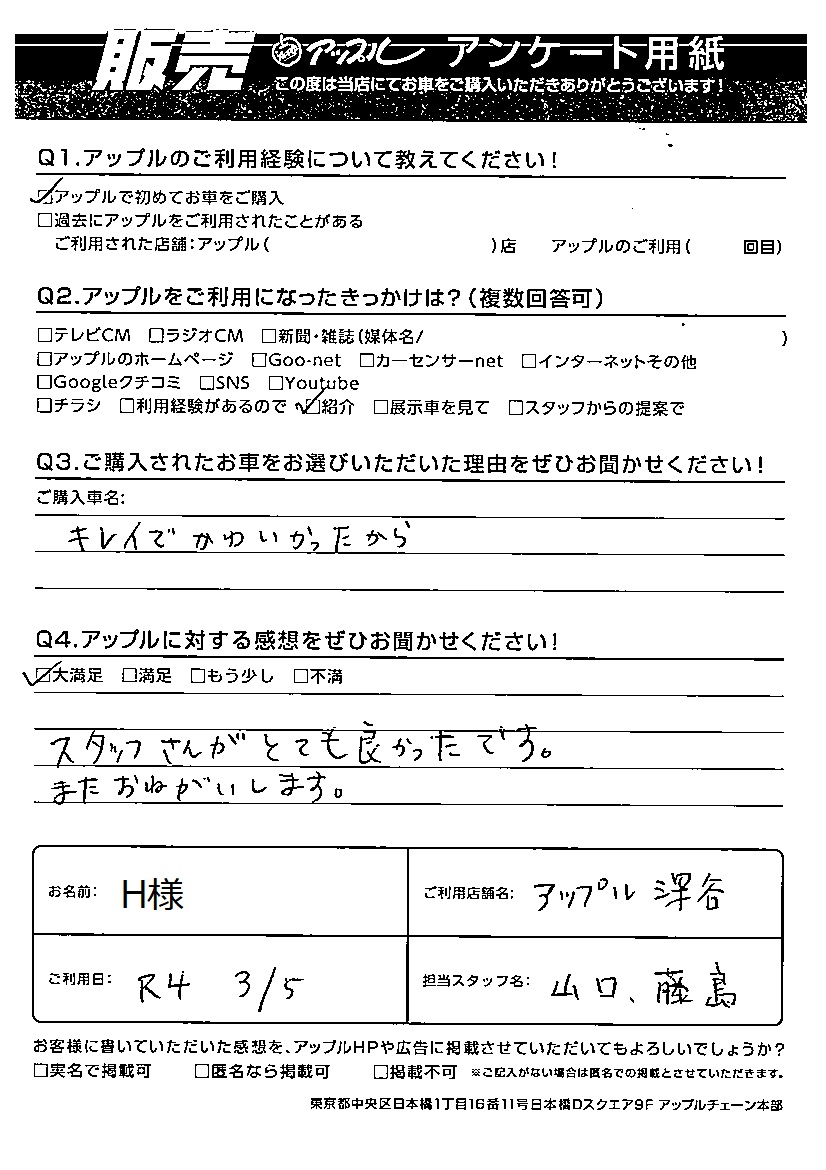 販売 アップル アンケート用紙
この度は当店にてお車をご購入いただきありがとうございます!
Q1.アップルのご利用経験について教えてください!
☑アップルで初めてお車をご購入
□過去にアップルをご利用されたことがある
ご利用された店舗:アップル( )店 アップルのご利用( 回目)
Q2.アップルをご利用になったきっかけは?(複数回答可)
□テレビCM □ラジオCM □新聞・雑誌(媒体名/ )
□アップルのホームページ □Goo-net □カーセンサーnet □インターネットその他
□Googleクチコミ □SNS □Youtube
□チラシ □利用経験があるので ☑紹介 □展示車を見て □スタッフからの提案で
Q3.ご購入されたお車をお選びいただいた理由をぜひお聞かせください!
ご購入車名:
キレイでかわいかったから
Q4.アップルに対する感想をぜひお聞かせください!
☑大満足 □満足 □もう少し □不満
スタッフさんがとても良かったです。
またおねがいします。
お名前: H様 ご利用店舗名: アップル 深谷
ご利用日: R4 3/5 担当スタッフ名: 山口、藤島
お客様に書いていただいた感想を、アップルHPや広告に掲載させていただいてもよろしいでしょうか?
□実名で掲載可 □匿名なら掲載可 □掲載不可 ※ご記入がない場合は匿名での掲載とさせていただきます。
東京都中央区日本橋1丁目16番11号日本橋Dスクエア9F アップルチェーン本部